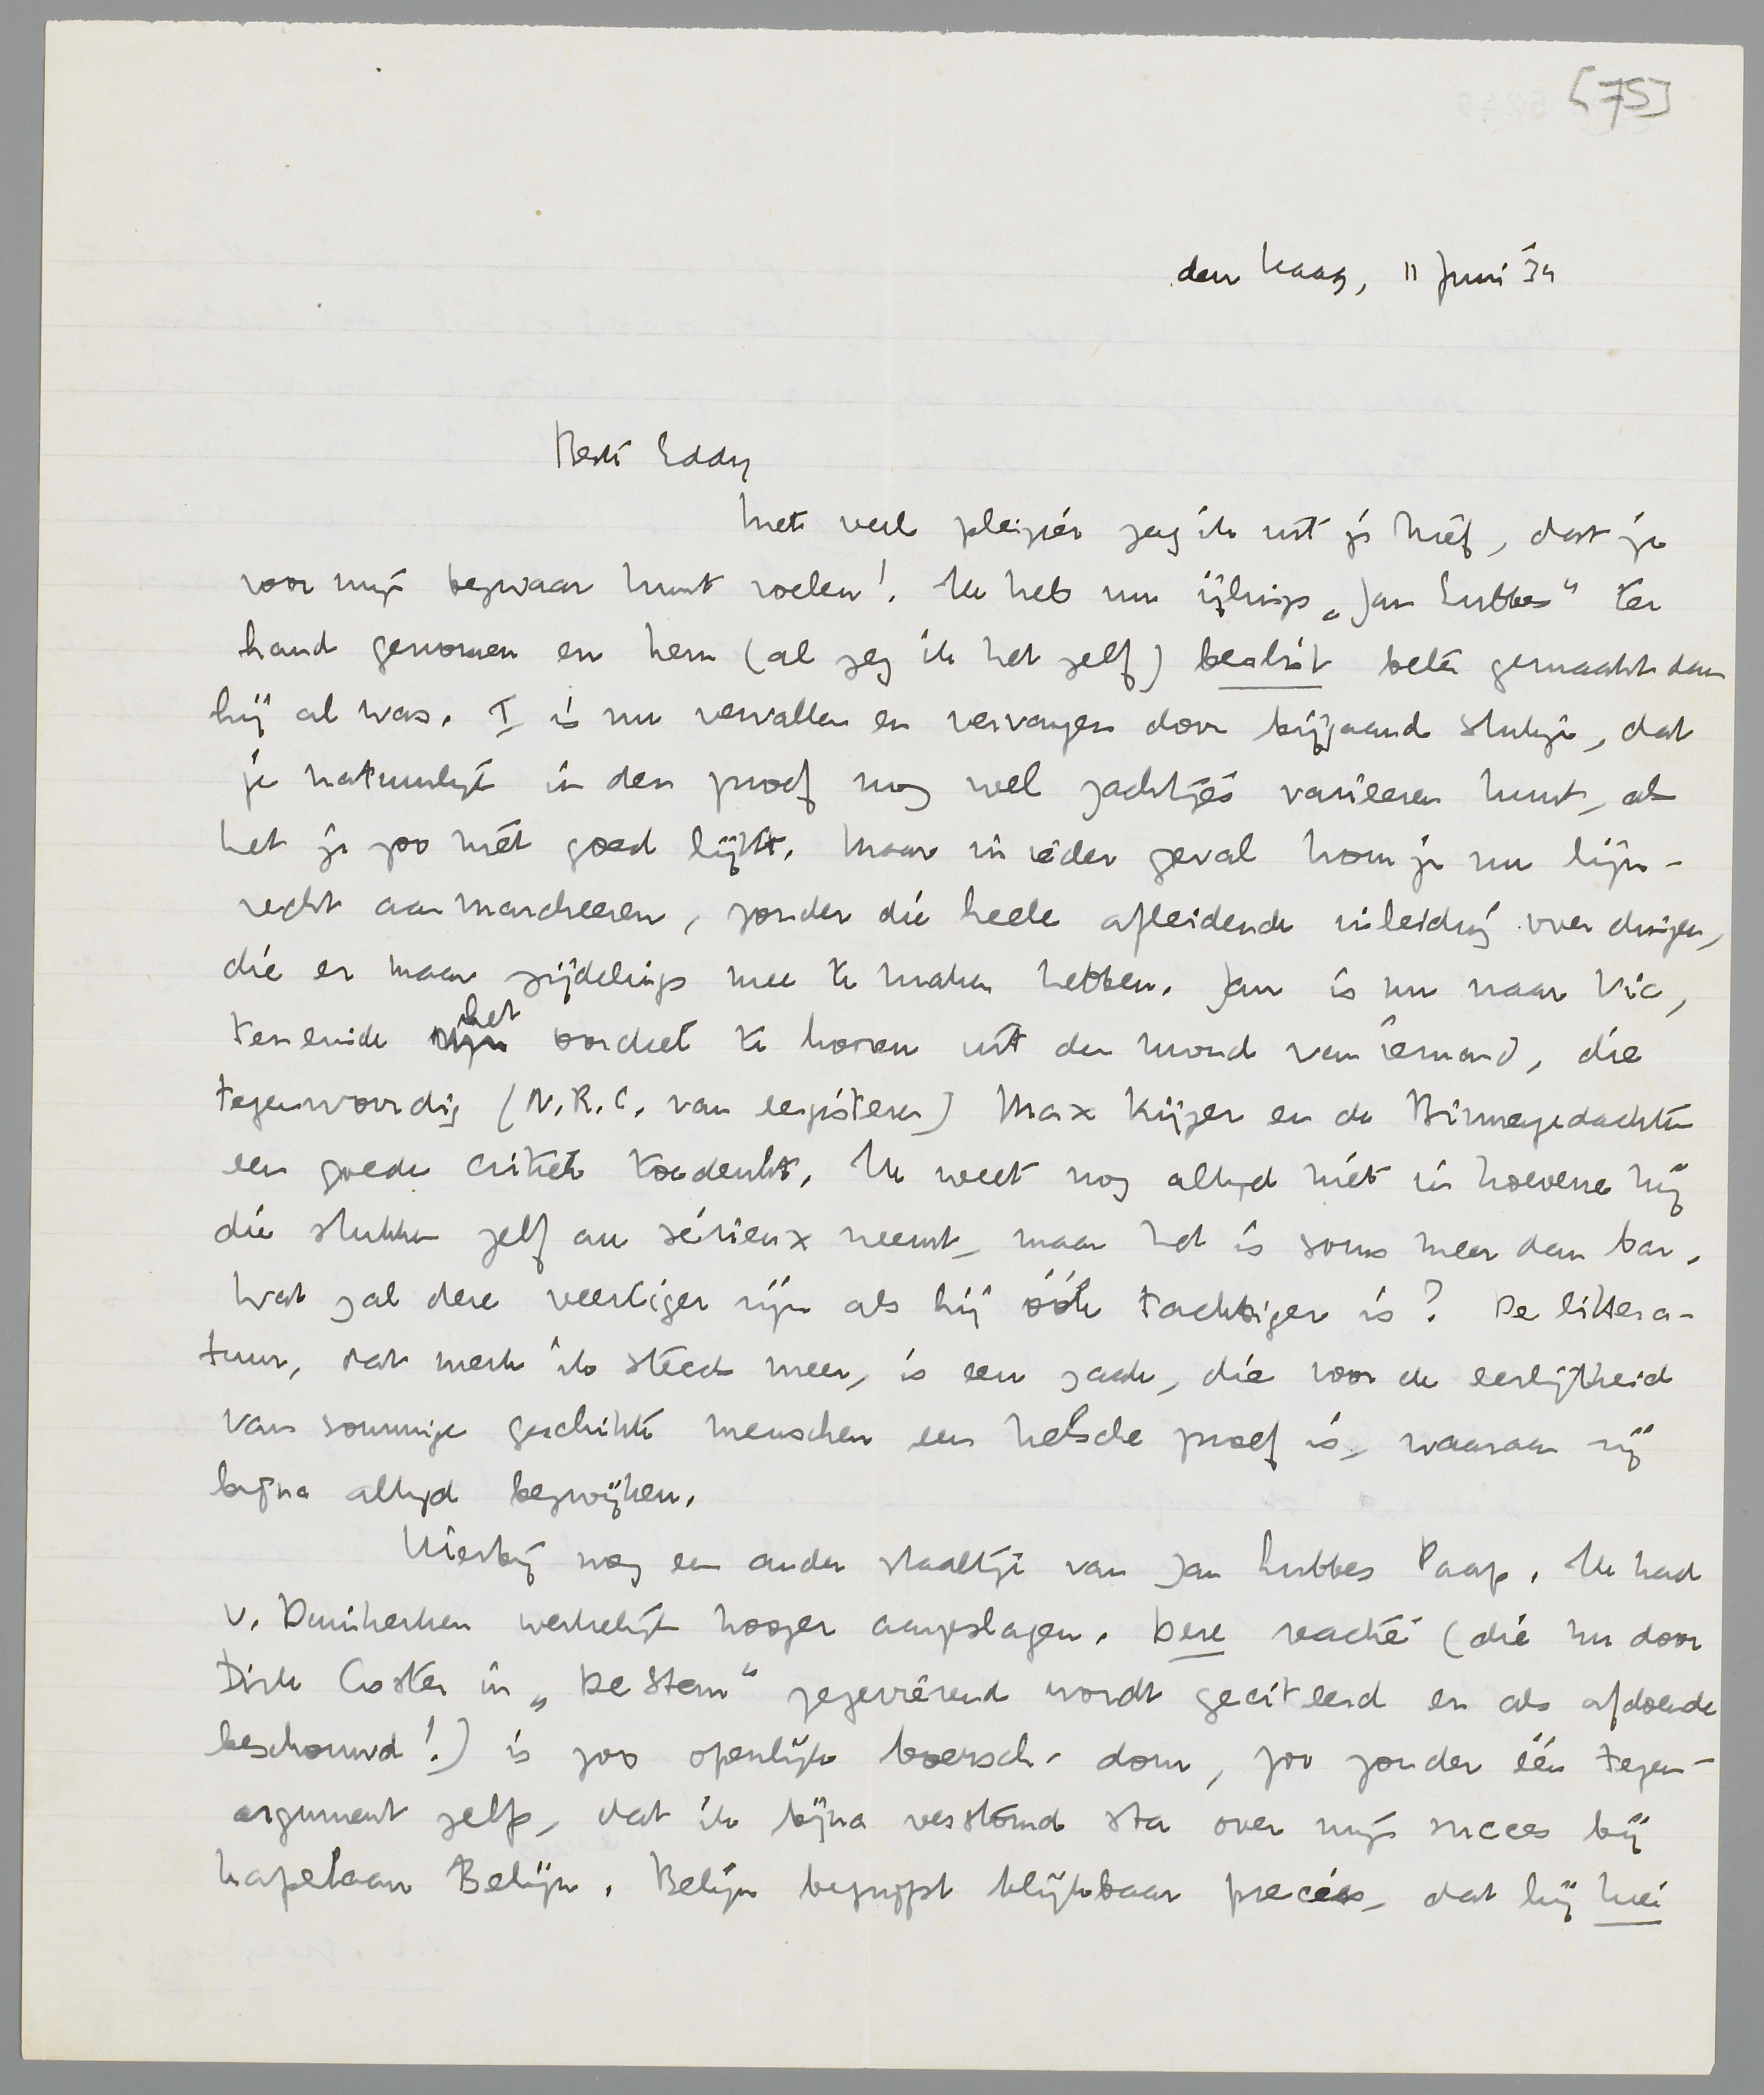 [75]
den Haag, 11 Juni '34
Beste Eddy
Met veel pleizier zag ik uit je brief, dat je
voor mijn bezwaar kunt voelen! Ik heb nu ijlings „Jan Lubbes" ter
hand genomen en hem (al zeg ik het zelf) beslist beter gemaakt dan
hij al was. I is nu vervallen en vervangen door bijgaand stukje, dat
je natuurlijk in den proef nog wel zachtjes varieeren kunt, als
het je zoo niet goed lijkt. Maar in ieder geval kom je nu lijn-
recht aanmarcheeren, zonder die heele afleidende inleiding over dingen,
die er maar zijdelings mee te maken hebben. Jan is nu naar Vic,
teneinde het oordeel te hooren uit den mond van iemand, die
tegenwoordig (N.R.C. van eergisteren) Max Kijzer en de Binnengedachten
een goede critiek toedenkt. Ik weet nog altijd niet in hoeverre hij
die stukken zelf au sérieux neemt, maar het is soms meer dan bar.
Wat zal deze veertiger zijn als hij óók tachtiger is? De littera-
tuur, dat merk ik steeds meer, is een zaak, die voor de eerlijkheid
van sommige geschikte menschen een helsche proef is, waaraan zij
bijna altijd bezwijken.
Hierbij nog een ander staaltje van Jan Lubbes Paap. Ik had
v. Duinkerken werkelijk hooger aangeslagen. Deze reactie (die nu door
Dirk Coster in „De Stem" zegevierend wordt geciteerd en als afdoende
beschouwd!) is zoo openlijk boersch-dom, zoo zonder één tegen-
argument zelfs, dat ik bijna verstomd sta over mijn succes bij
kapelaan Belijn. Belijn begrijpt blijkbaar precies, dat hij hier